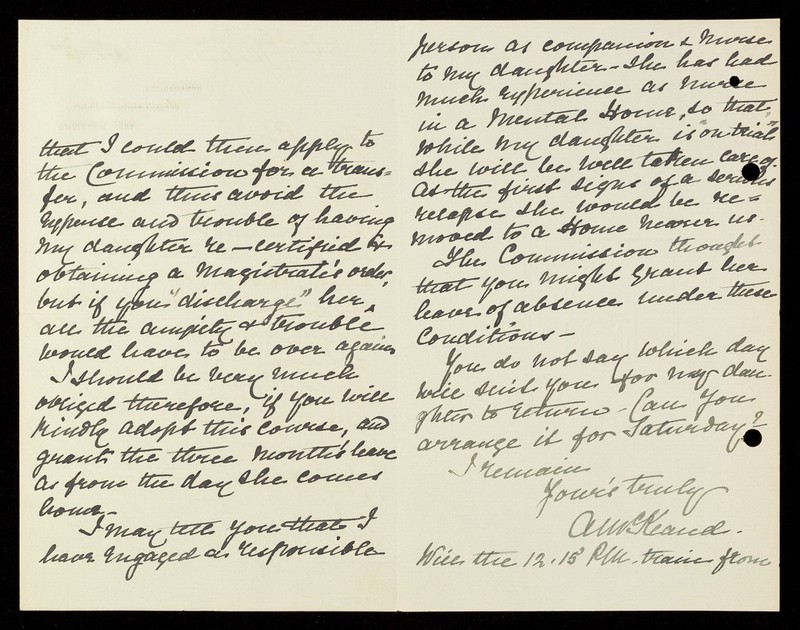 that I could then apply to
the Commission for a trans=
fer, and thus avoid the
expense and trouble of having
my daughter re-certified &
obtaining a Magistrate's order,
but if you "discharge" her,
all the anxiety & trouble
would have to be over again
I should be very much
obliged therefore, if you will
kindly adopt this course, and
grant the three month's leave
as from the day she comes
home-
I may tell you that I
have engaged a responsible
person as companion & Nurse
to my daughter - She has had
much experience as nurse
in a Mental Home, so that
while my daughter is "on trial"
she will be well taken care of.
As the first signs of a serious
relapse she would be re=
moved to a Home nearer us.
The Commission thought
that you might grant her
leave of absence under these
conditions -
You do not say which day
will suit you for my dau-
ghter to return - Can you
arrange it for Saturday?
I remain
Your's truly
A McKeand.
Will the 12.15 P.M. train from